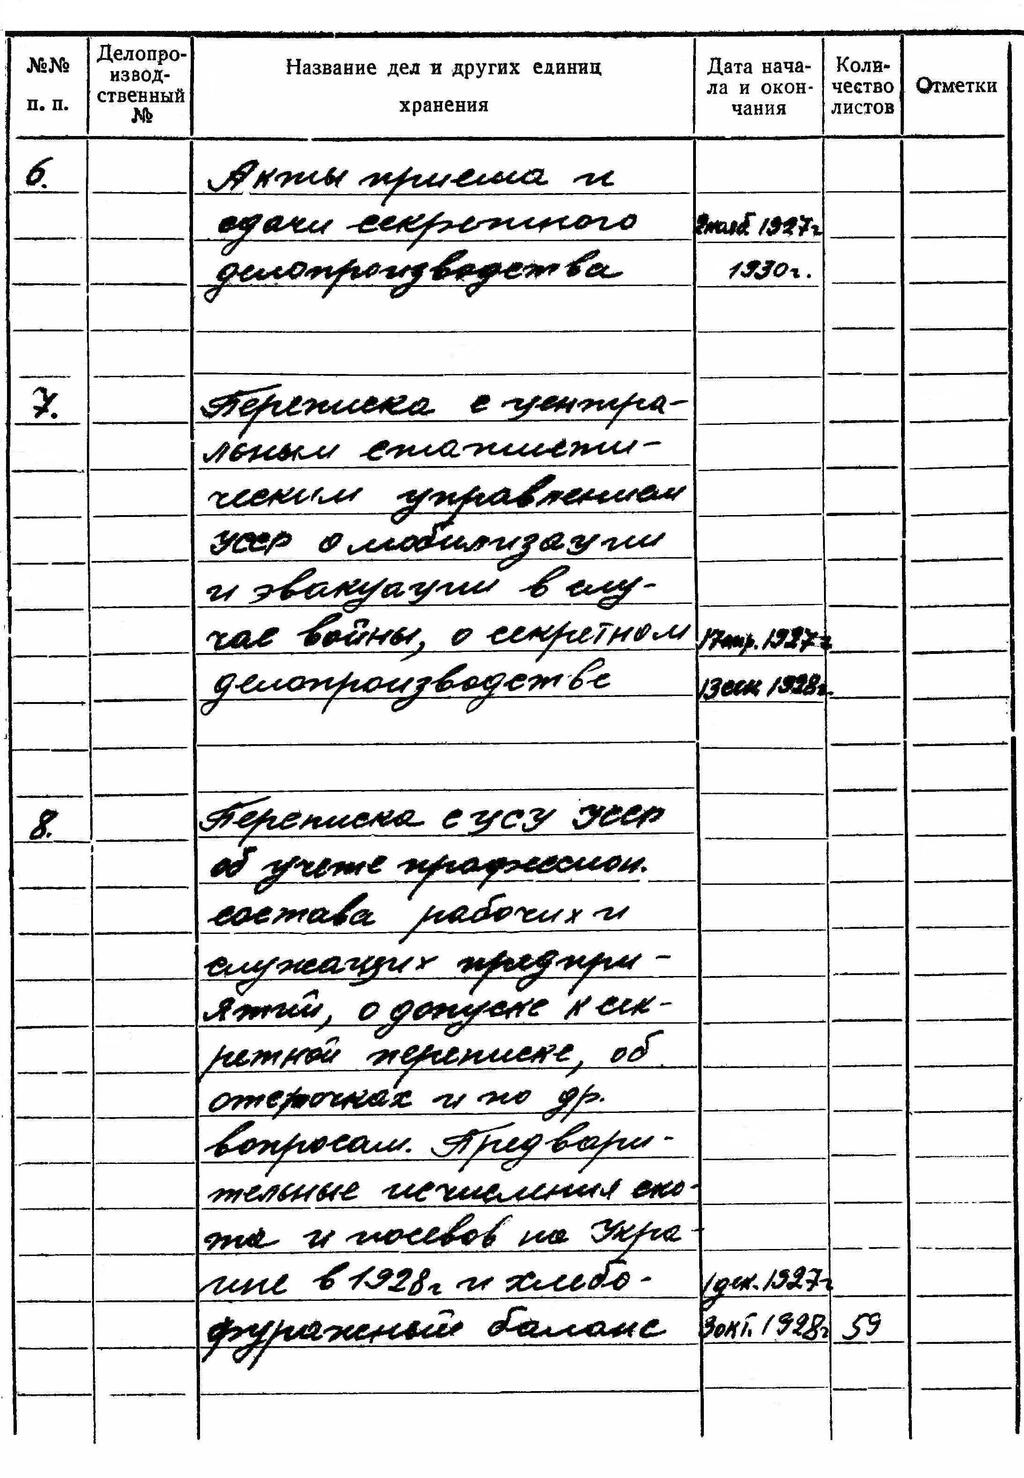 №№ п. п.
Делопроизвод-ственный №
Название дел и других единиц хранения
Дата нача-ла и окон-чания
Коли-чество листов
Отметки
6.
Акты приема и
сдачи секретного
1927г
делопроизводства
1930г.
7.
Переписка с центра-
льным статисти-
ческим управлением
УССР о мобилизации
и эвакуации в слу-
чае войны, о секретном
17 апр. 1927г
делопроизводстве
1928г.
8.
Переписка с ЦСУ УССР
об учете профессион.
состава рабочих и
служащих предпри-
ятий, о допуске к сек-
ретной переписке, об
отсрочках и по др.
вопросам. Предвари-
тельные исчисления ско-
та и посевов на Укра-
ине в 1928г и хлебо-
1 дек. 1927г
фуражный баланс
3 окт. 1928г
59